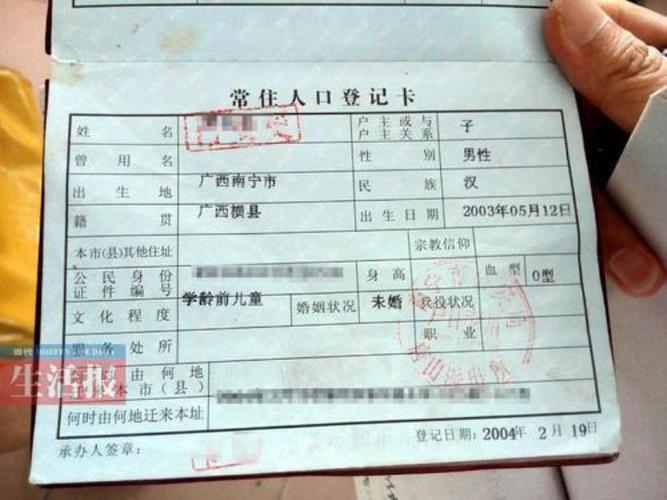 常住人口登记卡
姓名
户主或与户主关系 子
曾用名 性别 男性
出生地 广西南宁市 民族 汉
籍贯 广西横县 出生日期 2003年05月12日
本市(县)其他住址 宗教信仰
公民身份证件编号 身高 血型 O型
文化程度 学龄前儿童 婚姻状况 未婚 兵役状况
服务处所 职业
由何地
本市(县)
何时由何地迁来本址
承办人签章: 登记日期: 2004年2月19日
当代
MODERN LIFE DAILY
生活报